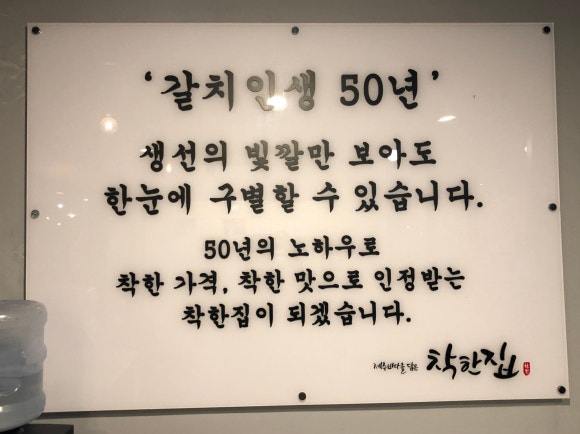 ‘갈치인생 50년’
생선의 빛깔만 보아도
한눈에 구별할 수 있습니다.
50년의 노하우로
착한 가격, 착한 맛으로 인정받는
착한집이 되겠습니다.
제주바다를 담은 착한집